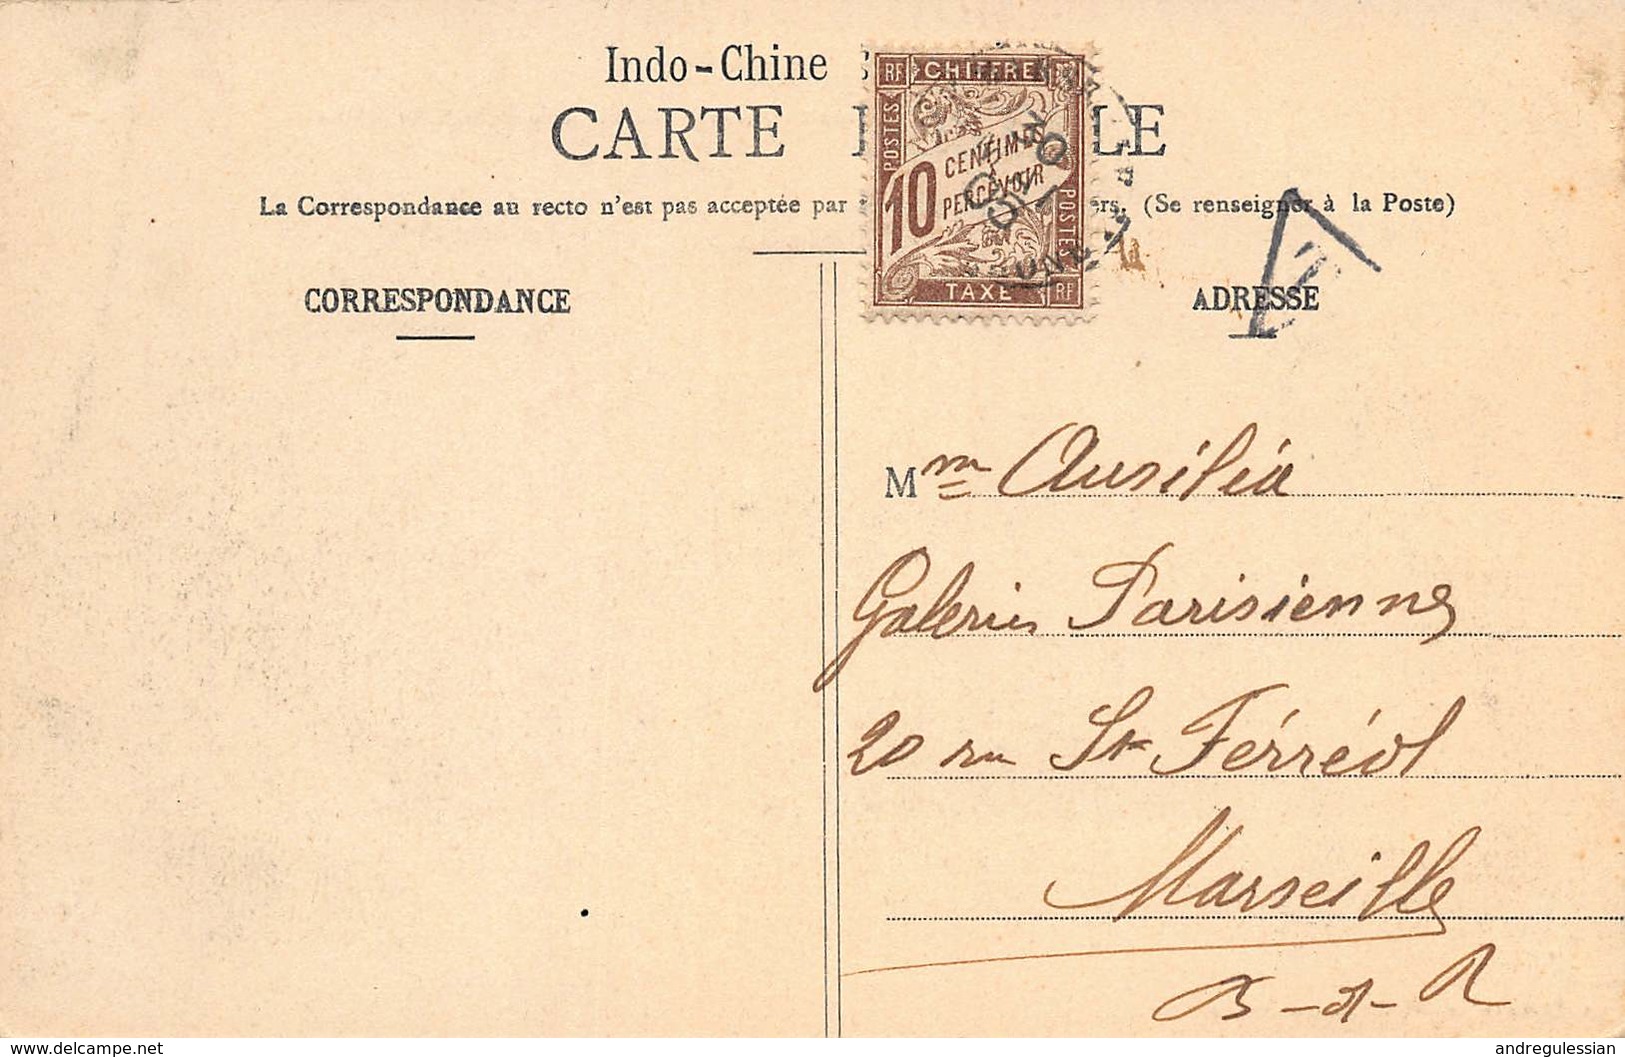 Indo-Chine
CARTE LE
La Correspondance au recto n'est pas acceptée par (Se renseigner à la Poste)
RF CHIFFRE
POSTES
10 CENTIMES
À
PERCEVOIR
POSTES
TAXE RF
T
CORRESPONDANCE
ADRESSE
Mme Ausilia
Galeries Parisiennes
20 rue St Férréol
Marseille
B-d-R
www.delcampe.net
andregulessian